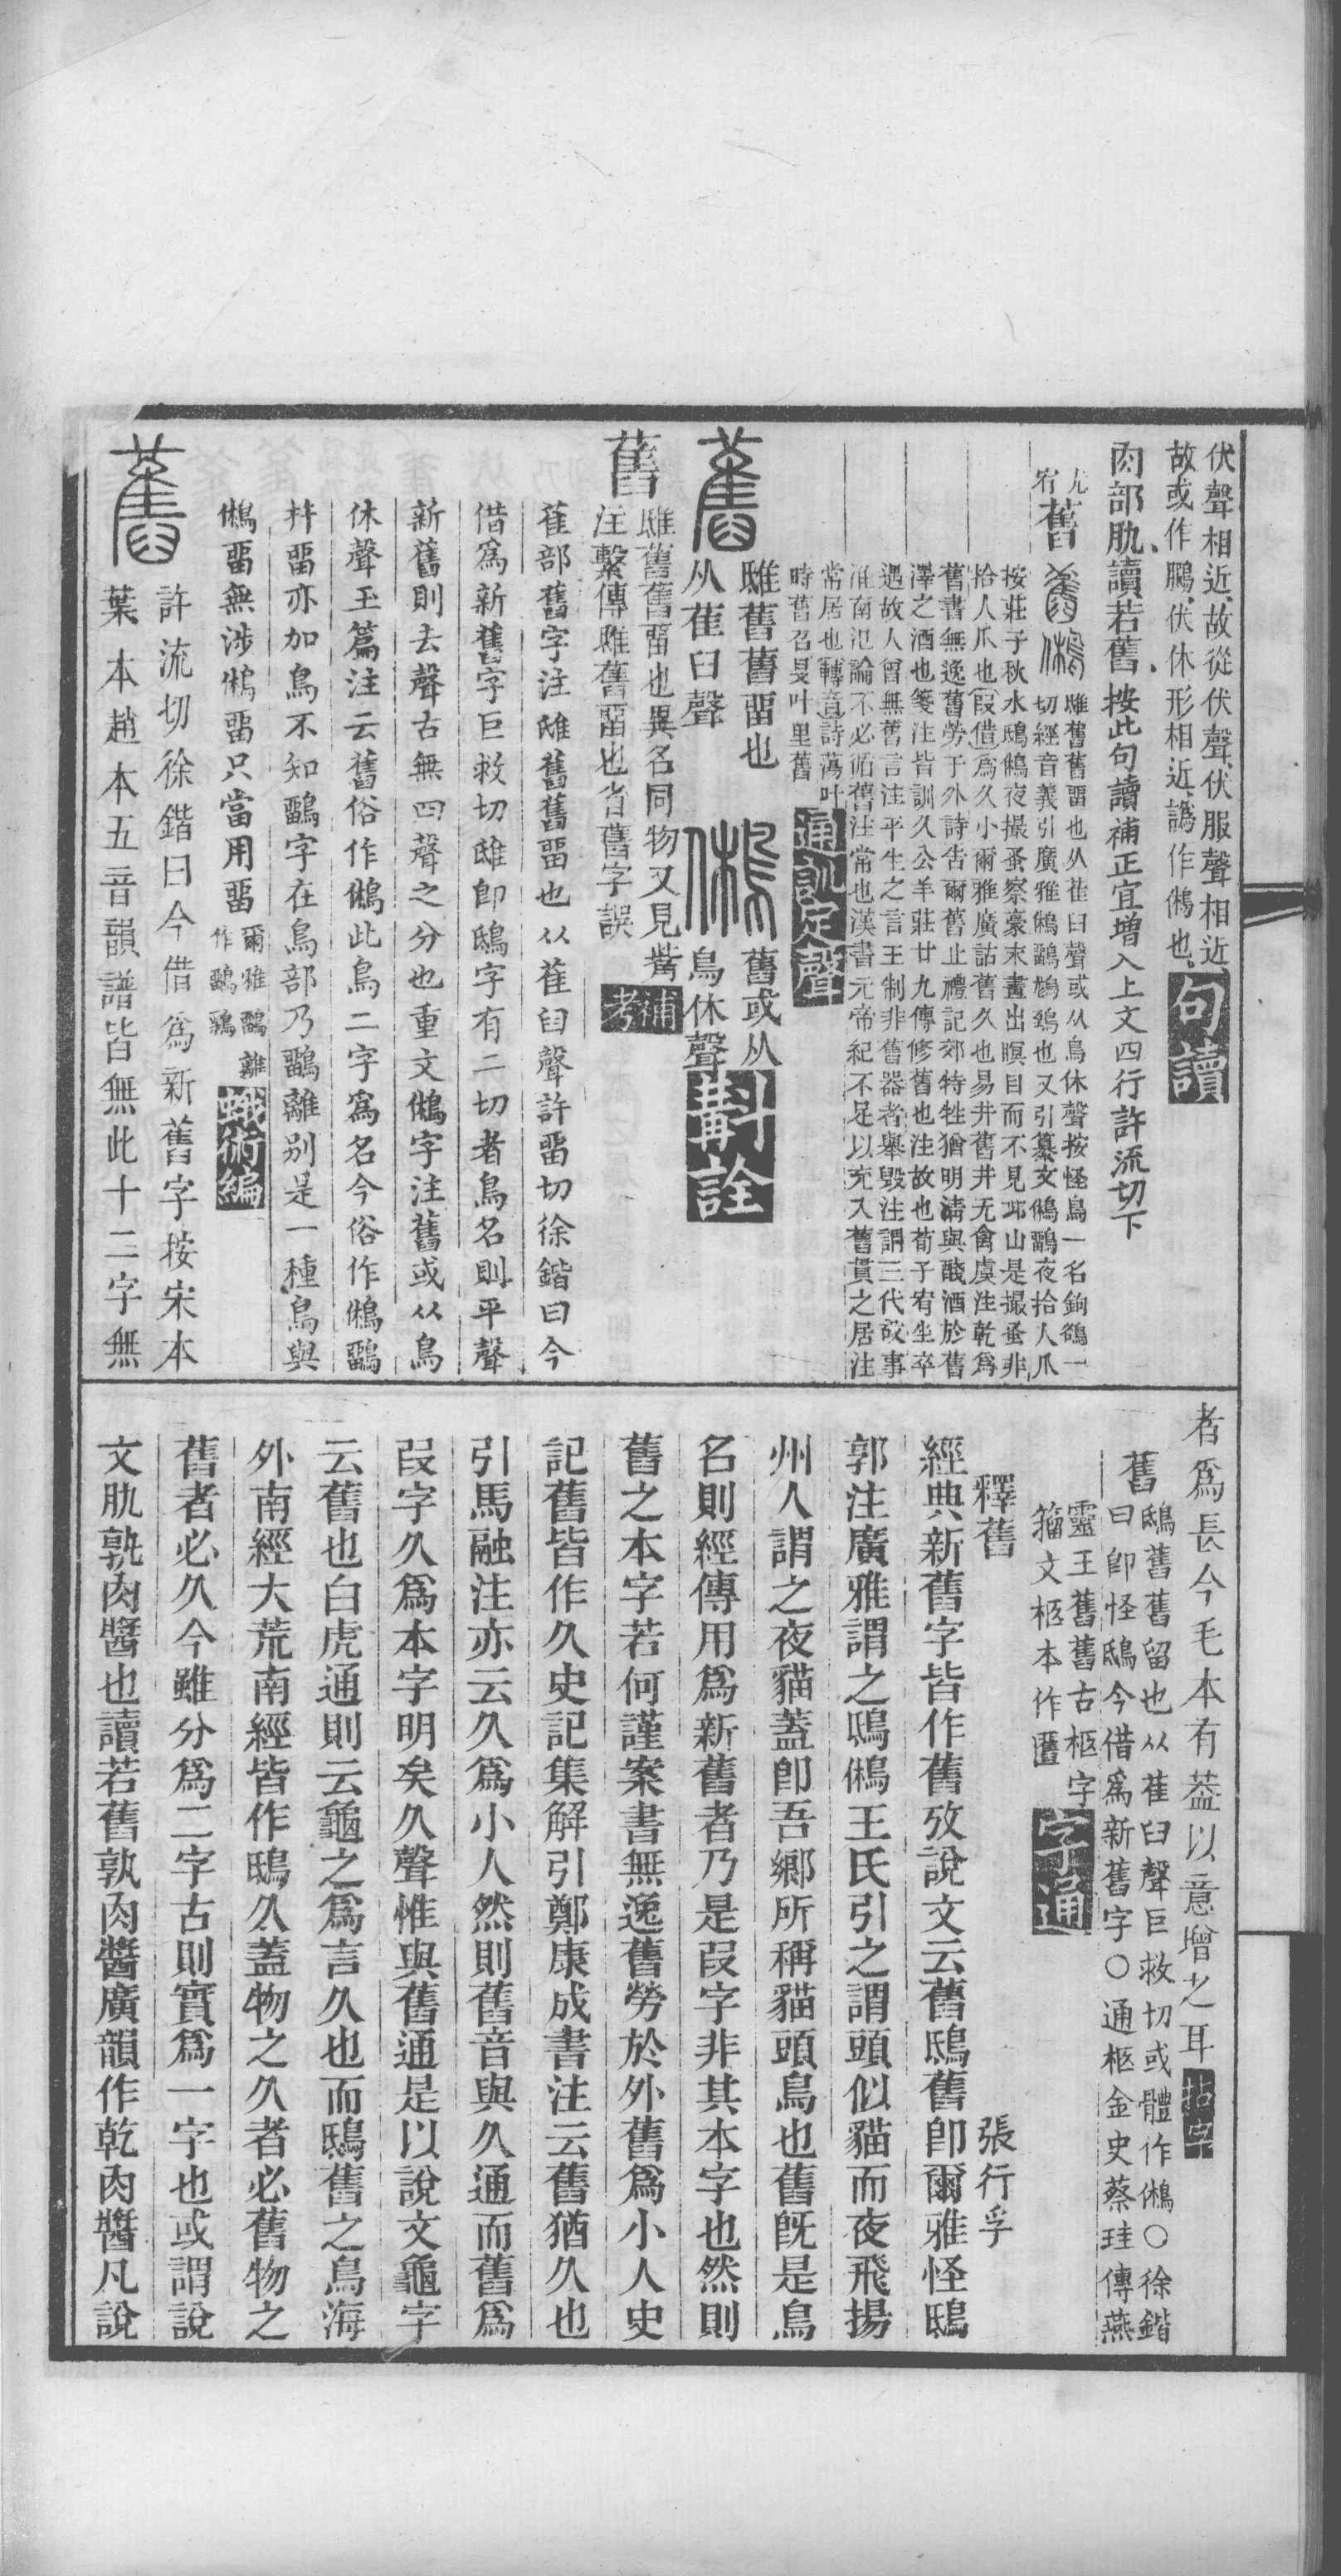 伏聲相近、故從伏聲、伏服聲相近、
故或作鵩、伏休形相近、譌作鵂也、句讀
肉部肍、讀若舊、按此句讀補正宜增入上文四行許流切下
尤宥
舊
雖舊舊畱也从萑臼聲或从鳥休聲按怪鳥一名鉤鵅一
切經音義引廣雅鵂鶹鴟鵄也又引纂文鵂鶹夜拾人爪
按莊子秋水鴟鵂夜撮蚤察豪末晝出瞑目而不見邱山是撮蚤非
拾人爪也叚借爲久小爾雅廣詁舊久也易井舊井无禽虞注乾爲
舊書無逸舊勞于外詩告爾舊止禮記郊特牲猶明淸與醆酒於舊
澤之酒也箋注皆訓久公羊莊廿九傳修舊也注故也荀子宥坐卒
遇故人曾無舊言注平生之言王制非舊器者舉毀注謂三代故事
淮南氾論不必循舊注常也漢書元帝紀不足以充入舊貫之居注
常居也轉音詩蕩叶
時舊召旻叶里舊
通訓定聲
雖舊舊畱也
从萑臼聲
舊或从
鳥休聲
斠詮
舊
雖舊舊畱也異名同物又見觜
注繫傳雖舊畱也省舊字誤
補考
萑部舊字注雖舊舊畱也从萑臼聲許畱切徐鍇曰今
借爲新舊字巨救切雖卽鴟字有二切者鳥名則平聲
新舊則去聲古無四聲之分也重文鵂字注舊或从鳥
休聲玉篇注云舊俗作鵂此鳥二字爲名今俗作鵂鶹
幷畱亦加鳥不知鶹字在鳥部乃鶹離別是一種鳥與
鵂畱無涉鵂畱只當用畱
爾雅鶹離
作鶹鶹
蛾術編
許流切徐鍇曰今借爲新舊字按宋本
葉本趙本五音韻譜皆無此十二字無
者爲長今毛本有葢以意增之耳
舊
鴟舊舊留也从萑臼聲巨救切或體作鵂〇徐鍇
曰卽怪鴟今借爲新舊字〇通柩金史蔡珪傳燕
靈王舊舊古柩字
籒文柩本作匶
字通
釋舊
張行孚
經典新舊字皆作舊攷說文云舊鴟舊卽爾雅怪鴟
郭注廣雅謂之鴟鵂王氏引之謂頭似貓而夜飛揚
州人謂之夜貓蓋卽吾鄉所稱貓頭鳥也舊旣是鳥
名則經傳用爲新舊者乃是叚字非其本字也然則
舊之本字若何謹案書無逸舊勞於外舊爲小人史
記舊皆作久史記集解引鄭康成書注云舊猶久也
引馬融注亦云久爲小人然則舊音與久通而舊爲
叚字久爲本字明矣久聲惟與舊通是以說文龜字
云舊也白虎通則云龜之爲言久也而鴟舊之鳥海
外南經大荒南經皆作鴟久蓋物之久者必舊物之
舊者必久今雖分爲二字古則實爲一字也或謂說
文肍孰肉醬也讀若舊孰肉醬廣韻作乾肉醬凡說